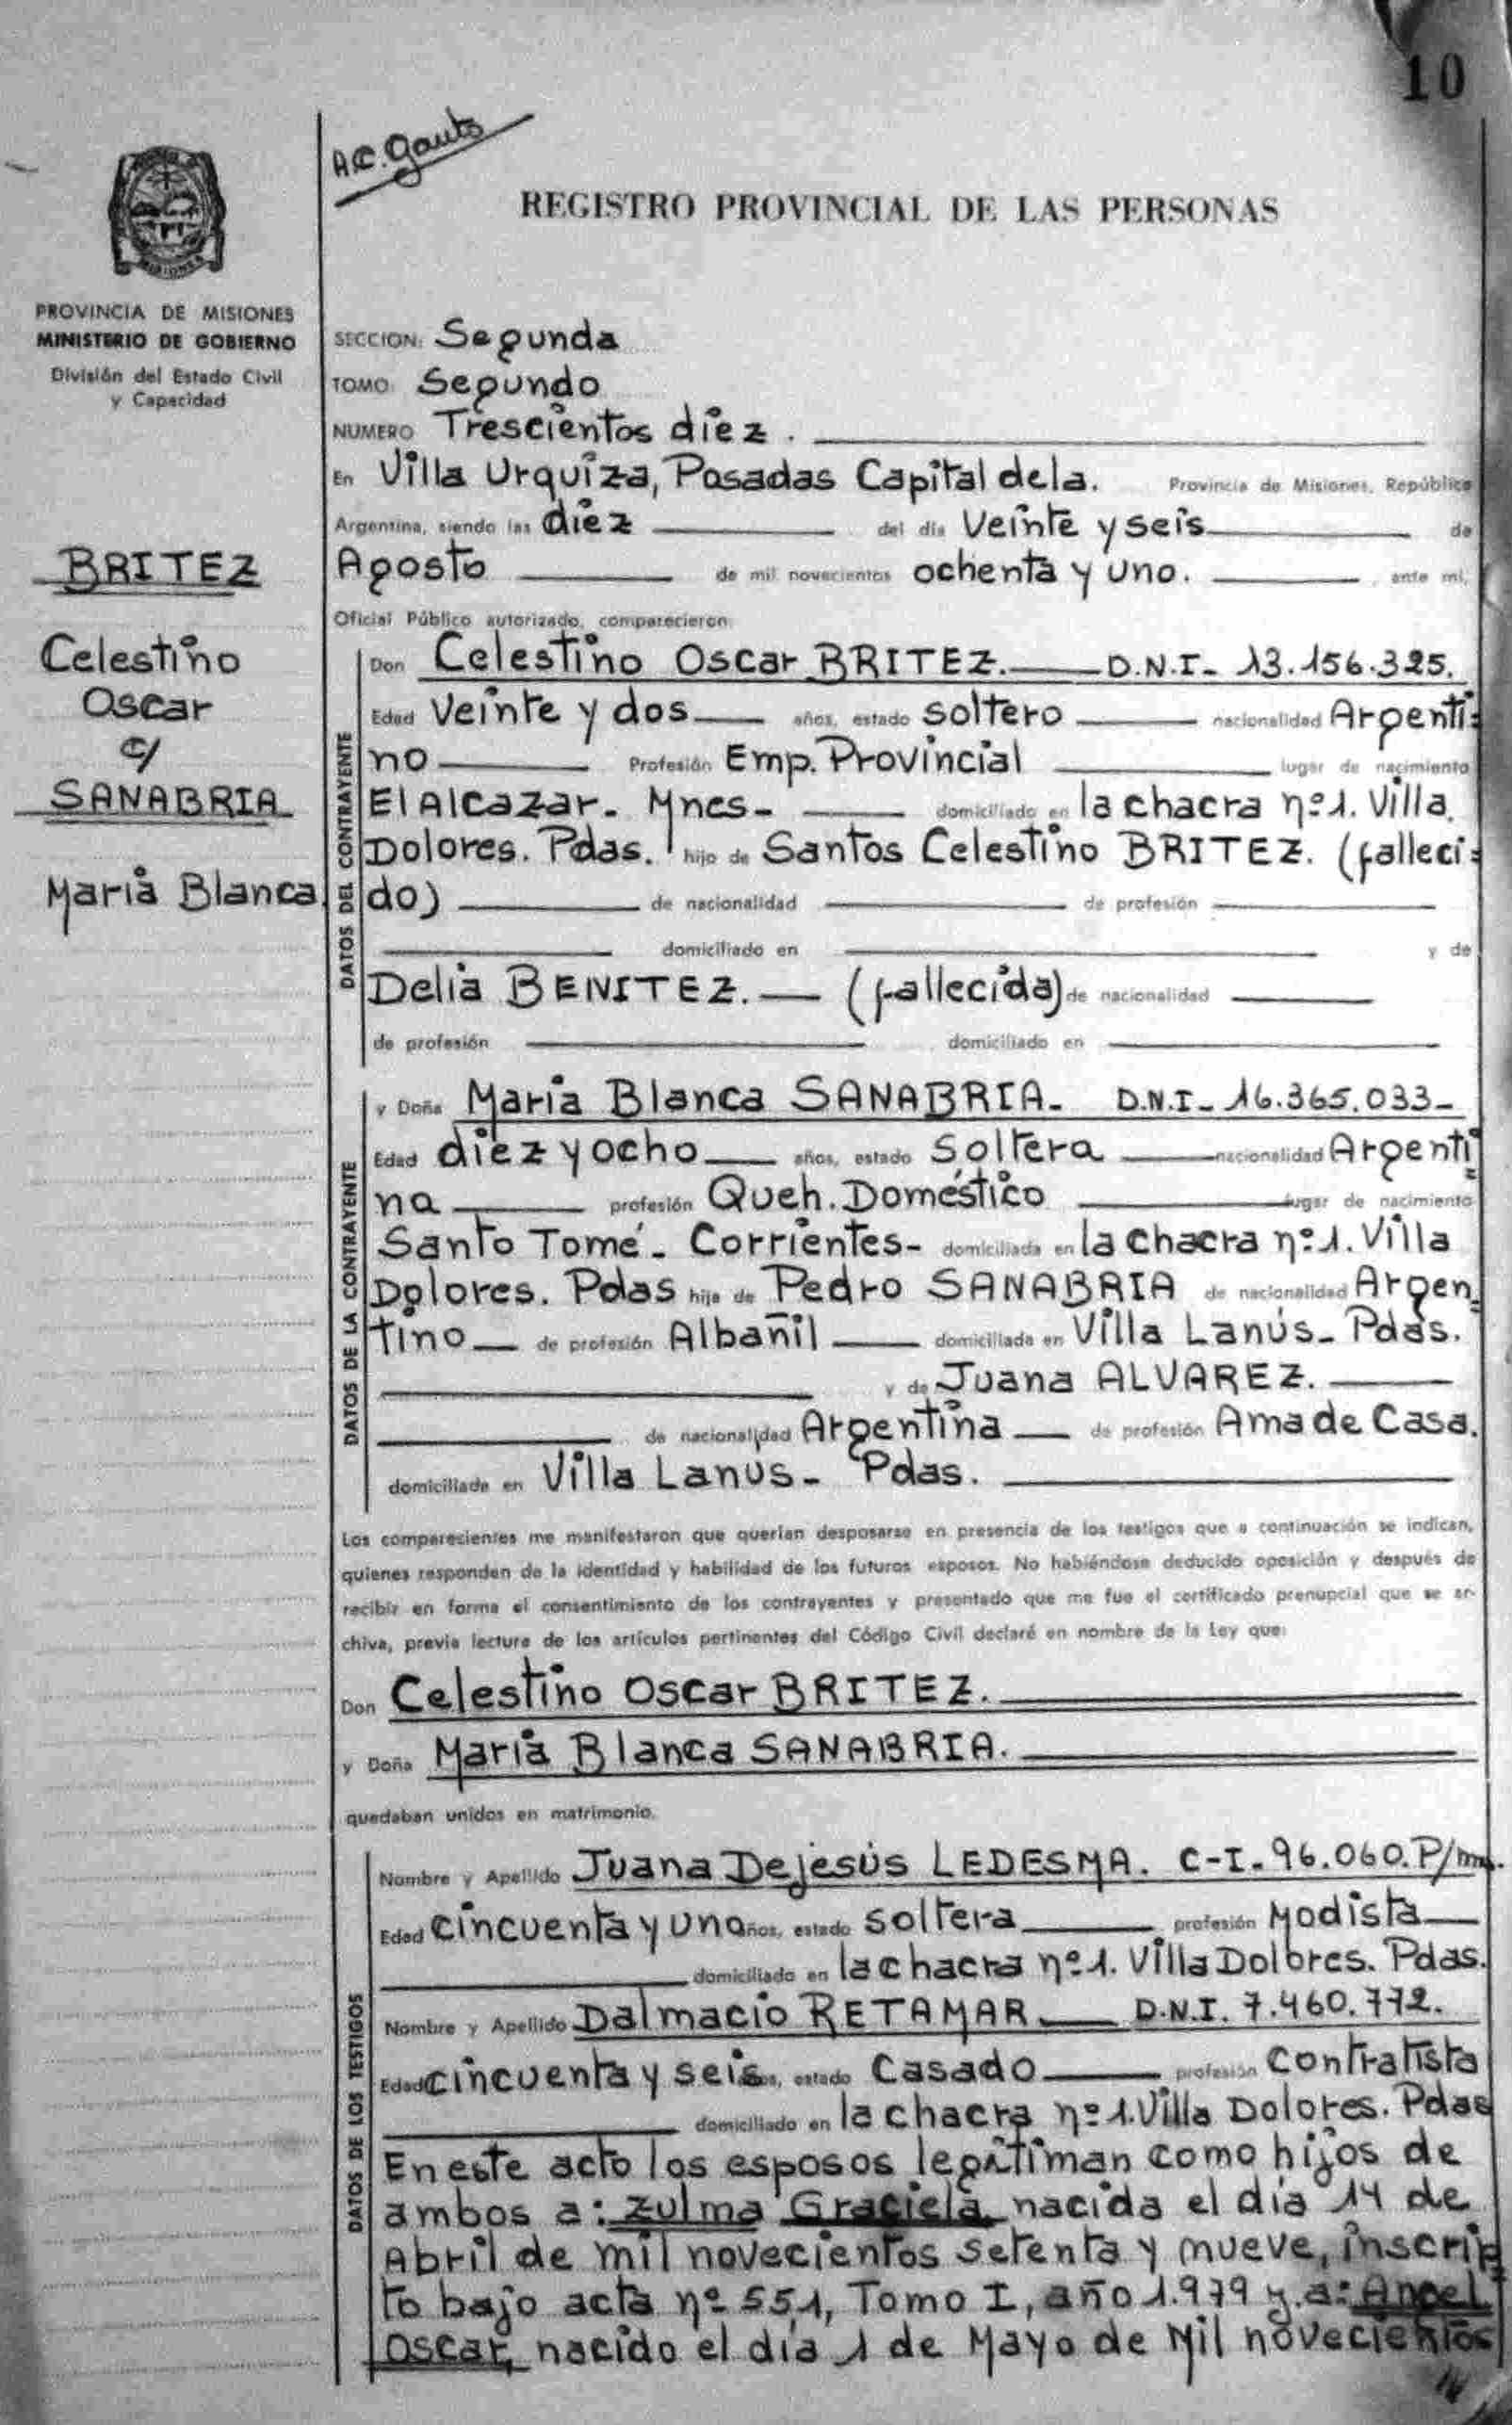 10
A.C. Gauto
REGISTRO PROVINCIAL DE LAS PERSONAS
MISIONES
PROVINCIA DE MISIONES
MINISTERIO DE GOBIERNO
División del Estado Civil
y Capacidad
BRITEZ
Celestino
Oscar
c/
SANABRIA
Maria Blanca
SECCION: Segunda
TOMO: Segundo
NUMERO Trescientos diez.
En Villa Urquiza, Posadas Capital dela. Provincia de Misiones, República
Argentina, siendo las diez del día Veinte y seis de
Agosto de mil novecientos ochenta y uno. ante mí,
Oficial Público autorizado, comparecieron:
DATOS DEL CONTRAYENTE
Don Celestino Oscar BRITEZ. D.N.I- 13.156.325.
Edad Veinte y dos años, estado soltero nacionalidad Argenti=
no Profesión Emp. Provincial lugar de nacimiento
El Alcazar. Mnes- domiciliado en la chacra nº1. Villa
Dolores. Pdas. hijo de Santos Celestino BRITEZ. (falleci=
do) de nacionalidad de profesión
domiciliado en y de
Delia BENITEZ. (fallecida) de nacionalidad
de profesión domiciliado en
DATOS DE LA CONTRAYENTE
y Doña Maria Blanca SANABRIA- D.N.I- 16.365.033-
Edad diez y ocho años, estado Soltera nacionalidad Argenti
na profesión Queh. Doméstico lugar de nacimiento
Santo Tomé- Corrientes- domiciliada en la chacra nº1. Villa
Dolores. Pdas hija de Pedro SANABRIA de nacionalidad Argen
tino de profesión Albañil domiciliado en Villa Lanús- Pdas.
y de Juana ALVAREZ.
de nacionalidad Argentina de profesión Ama de Casa.
domiciliada en Villa Lanus- Pdas.
Los comparecientes me manifestaron que querían desposarse en presencia de los testigos que a continuación se indican,
quienes responden de la identidad y habilidad de los futuros esposos. No habiéndose deducido oposición y después de
recibir en forma el consentimiento de los contrayentes y presentado que me fue el certificado prenupcial que se ar-
chiva, previa lectura de los artículos pertinentes del Código Civil declaré en nombre de la Ley que:
Don Celestino Oscar BRITEZ.
y Doña Maria Blanca SANABRIA.
quedaban unidos en matrimonio.
DATOS DE LOS TESTIGOS
Nombre y Apellido Juana Dejesús LEDESMA. C-I- 96.060. P/m.
Edad cincuenta y uno años, estado soltera profesión Modista
domiciliado en la chacra nº1. Villa Dolores. Pdas.
Nombre y Apellido Dalmacio RETAMAR D.N.I. 7.460.772.
Edad cincuenta y seis años, estado Casado profesión Contratista
domiciliado en la chacra nº1. Villa Dolores. Pdas
En este acto los esposos legitiman como hijos de
ambos a: Zulma Graciela, nacida el día 14 de
Abril de mil novecientos setenta y nueve, inscrip
to bajo acta nº 551, Tomo I, año 1.979 y a: Angel
Oscar, nacido el día 1 de Mayo de Mil novecientos